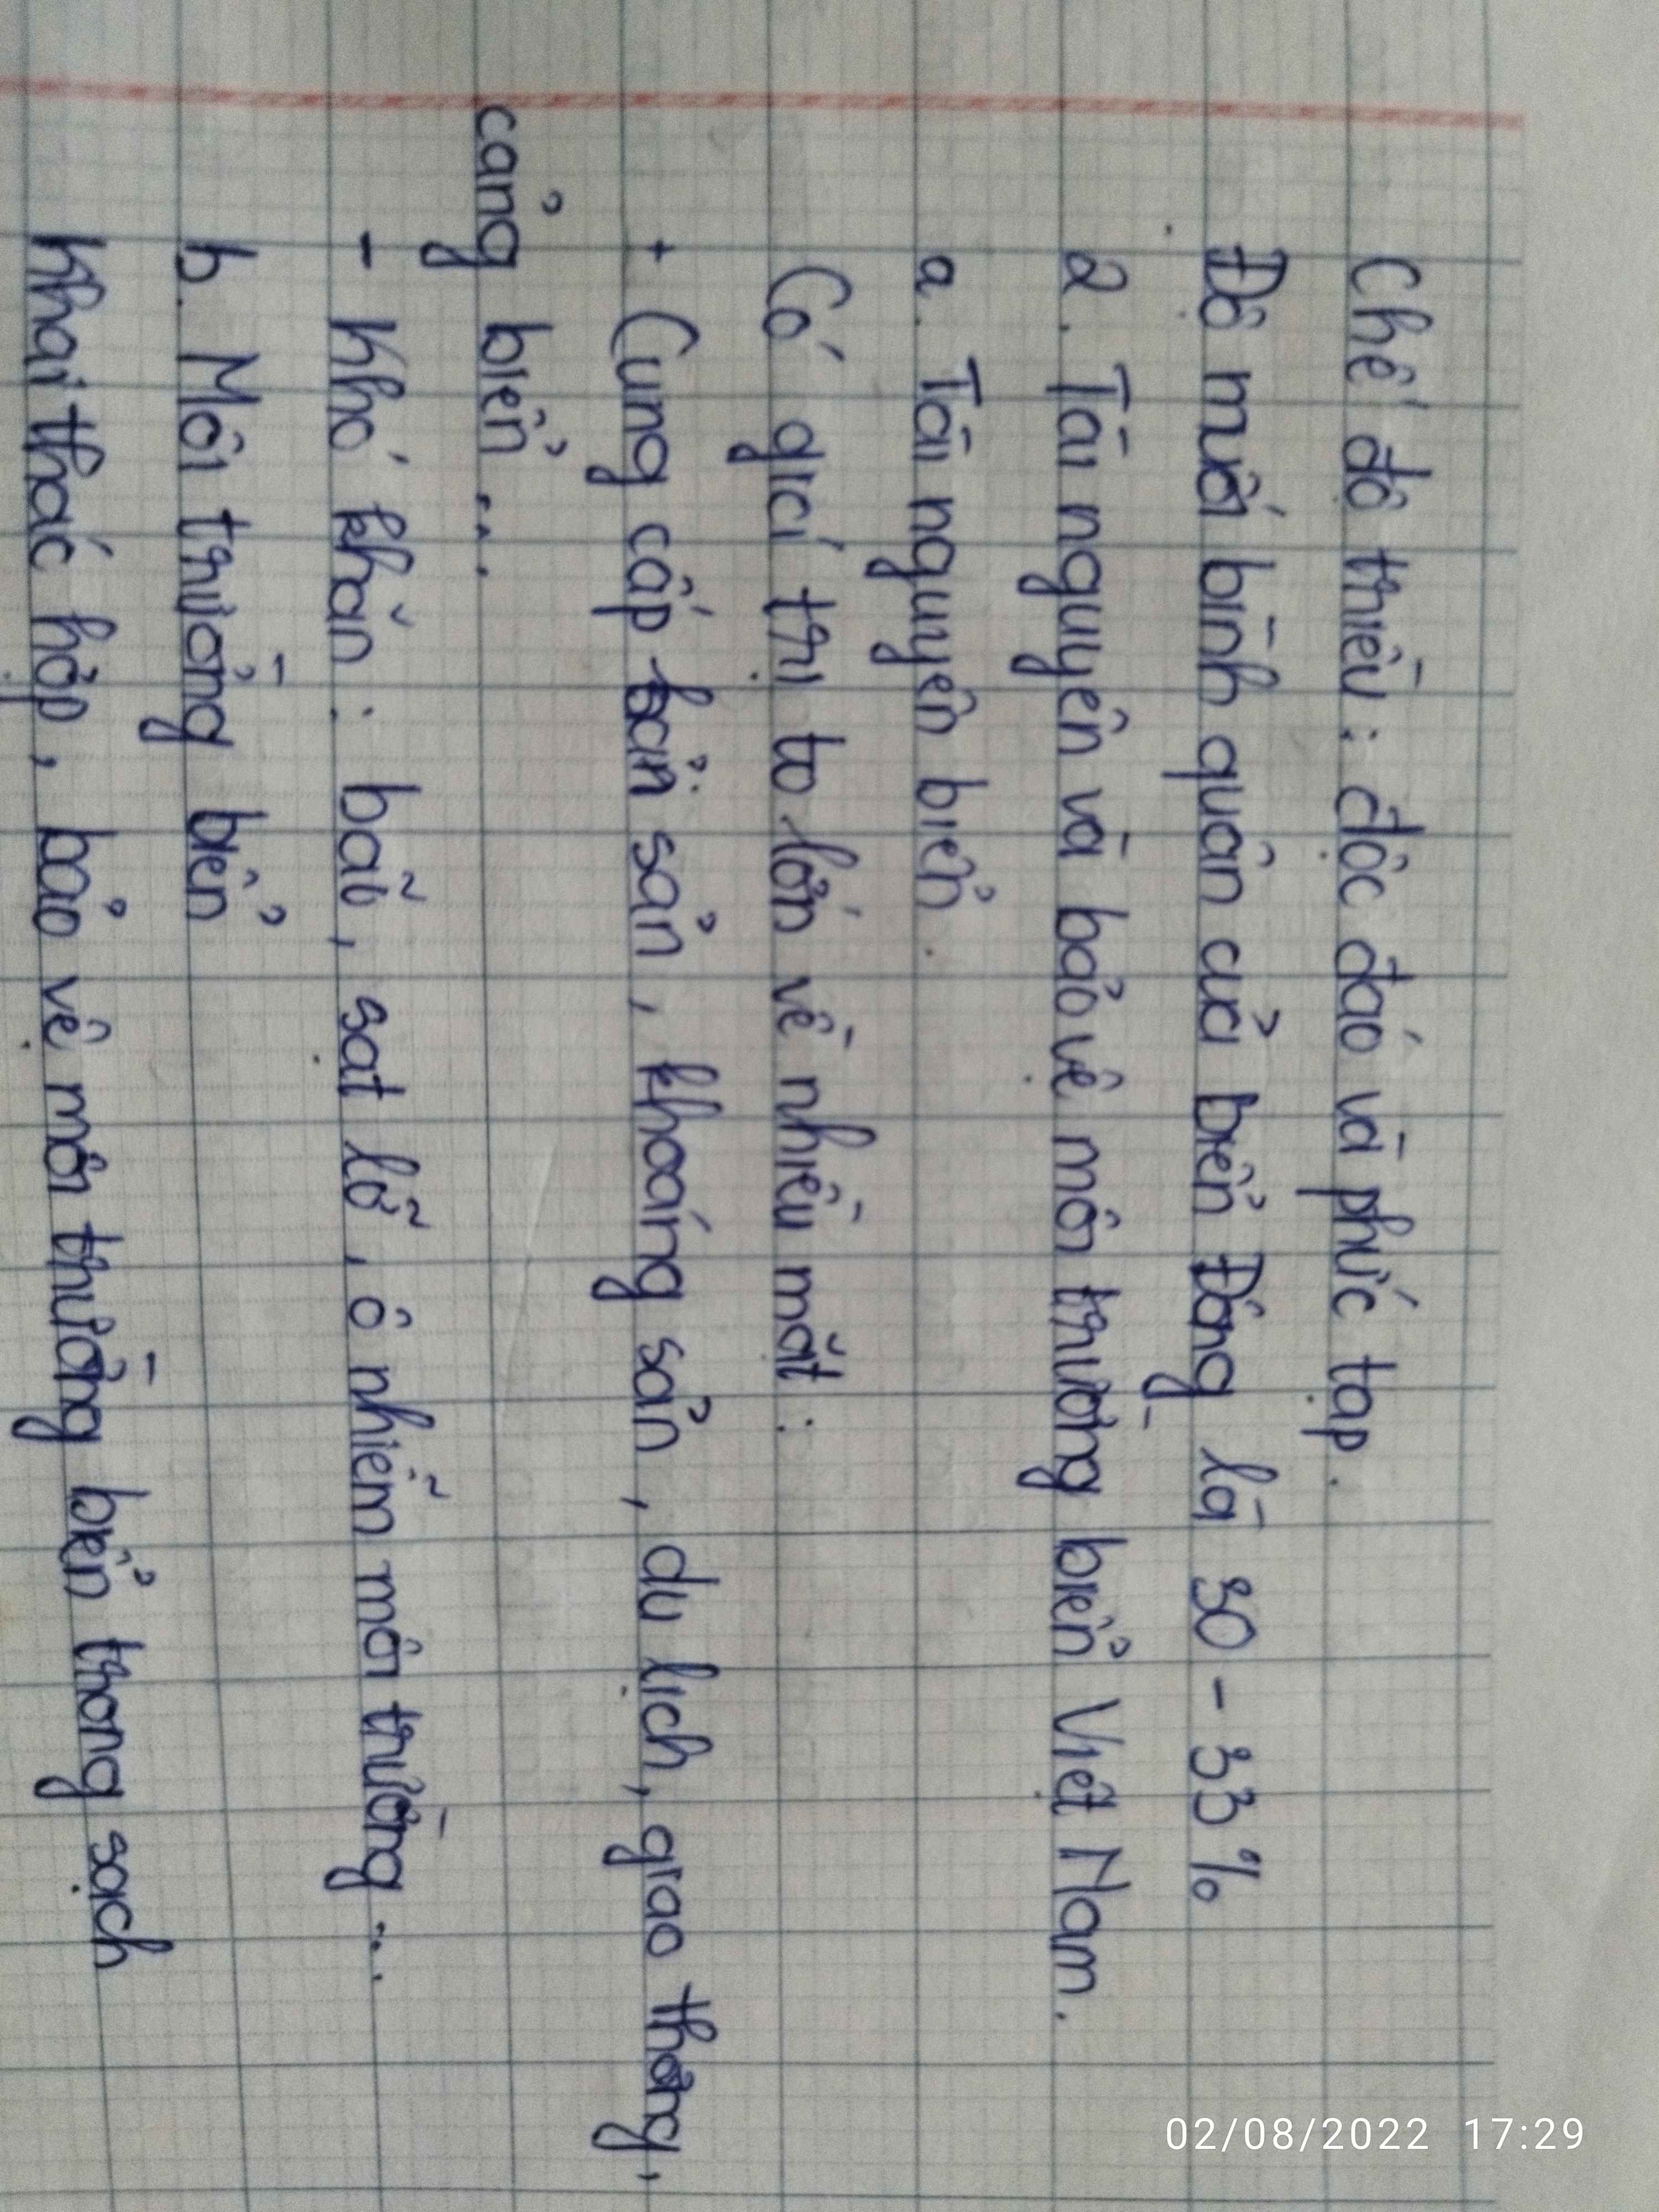 Chế độ triều : độc đáo và phức tạp.
Độ muối bình quân của biển Đông là 30 - 33%
2. Tài nguyên và bảo vệ môi trường biển Việt Nam.
a. Tài nguyên biển.
Có giá trị to lớn về nhiều mặt :
+ Cung cấp hải sản, khoáng sản, du lịch, giao thông,
cảng biển...
- Khó khăn : bão, sạt lở, ô nhiễm môi trường...
b. Môi trường biển
Khai thác hợp, bảo vệ môi trường biển trong sạch
02/08/2022 17:29